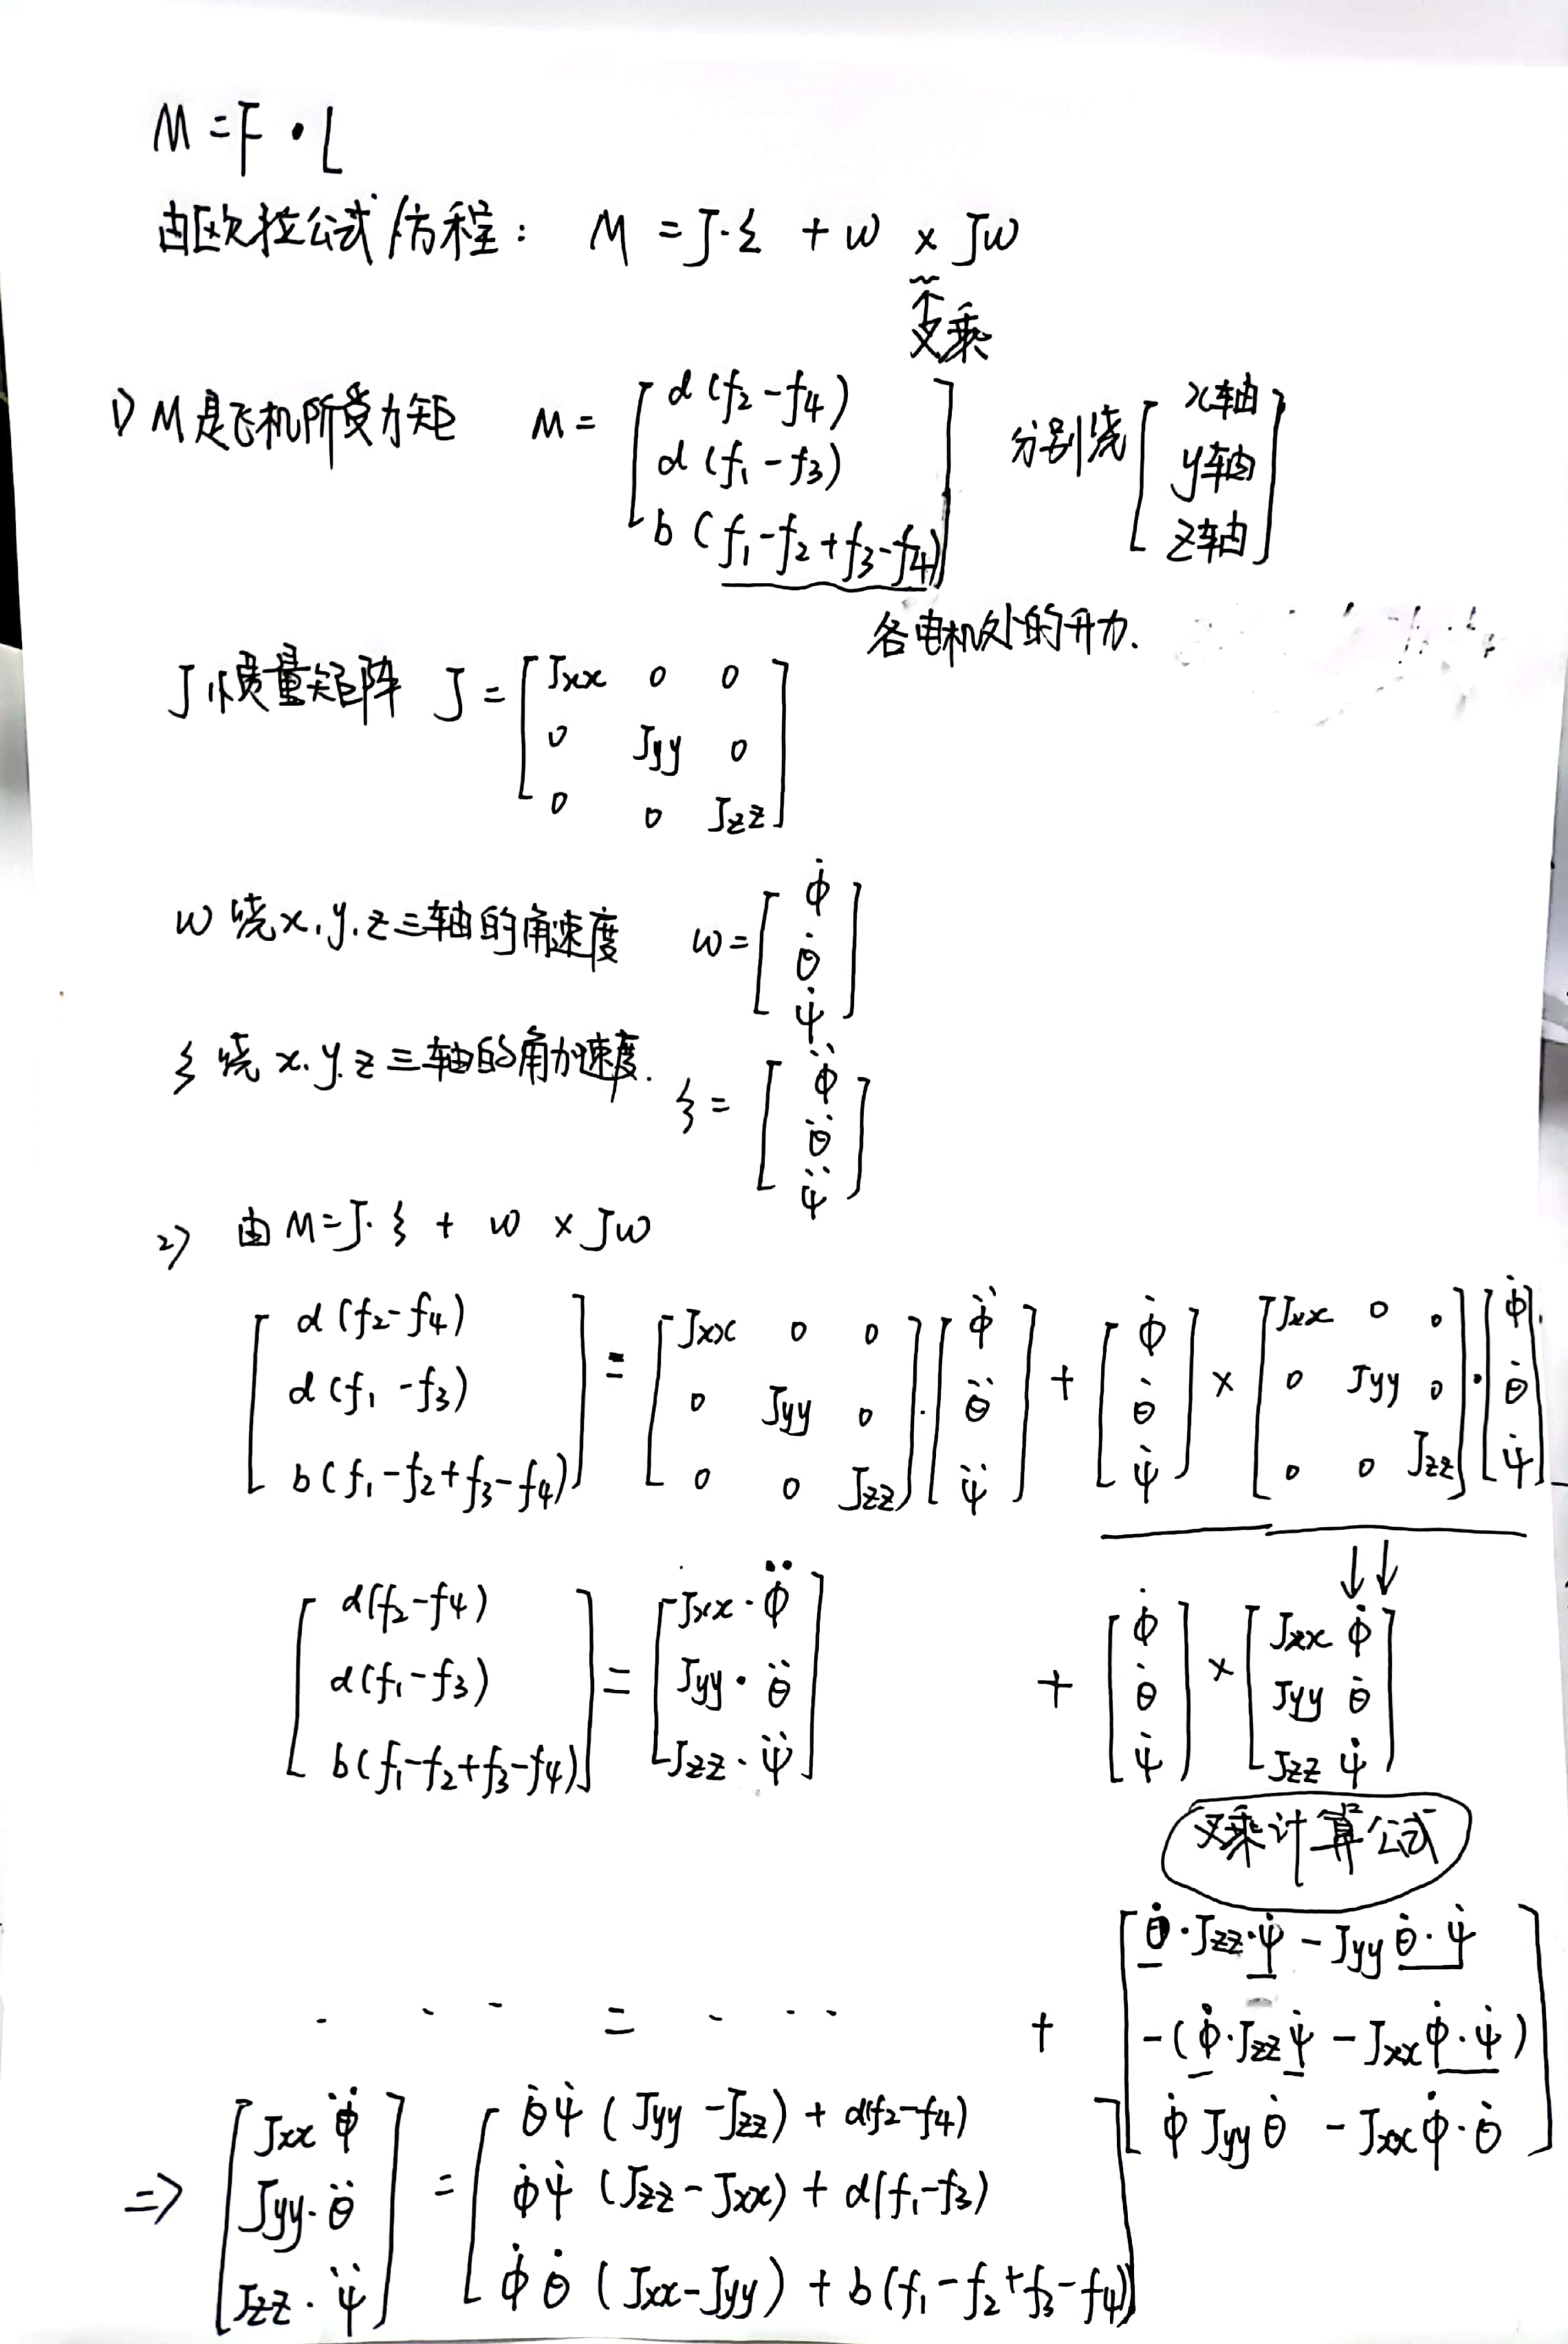 M = F · L
由欧拉公式/方程： M = J·ξ + w × Jw
↑
叉乘
1) M是飞机所受力矩 M = [ d(f₂-f₄) ; d(f₁-f₃) ; b(f₁-f₂+f₃-f₄) ] 分别绕 [ x轴 ; y轴 ; z轴 ]
各电机处的升力.
J 惯量矩阵 J = [ Jxx 0 0 ; 0 Jyy 0 ; 0 0 Jzz ]
w 绕x.y.z三轴的角速度 w = [ φ̇ ; θ̇ ; ψ̇ ]
ξ 绕x.y.z三轴的角加速度. ξ = [ φ̈ ; θ̈ ; ψ̈ ]
2) 由 M = J·ξ + w × Jw
[ d(f₂-f₄) ; d(f₁-f₃) ; b(f₁-f₂+f₃-f₄) ] = [ Jxx 0 0 ; 0 Jyy 0 ; 0 0 Jzz ] · [ φ̈ ; θ̈ ; ψ̈ ] + [ φ̇ ; θ̇ ; ψ̇ ] × [ Jxx 0 0 ; 0 Jyy 0 ; 0 0 Jzz ] · [ φ̇ ; θ̇ ; ψ̇ ]
↓↓
[ d(f₂-f₄) ; d(f₁-f₃) ; b(f₁-f₂+f₃-f₄) ] = [ Jxx·φ̈ ; Jyy·θ̈ ; Jzz·ψ̈ ] + [ φ̇ ; θ̇ ; ψ̇ ] × [ Jxx φ̇ ; Jyy θ̇ ; Jzz ψ̇ ]
叉乘计算公式
· · · = · · · + [ θ̇·Jzz·ψ̇ - Jyy θ̇·ψ̇ ; -(φ̇·Jzz ψ̇ - Jxx φ̇·ψ̇) ; φ̇ Jyy θ̇ - Jxx φ̇·θ̇ ]
⇒ [ Jxx φ̈ ; Jyy·θ̈ ; Jzz·ψ̈ ] = [ θ̇ψ̇ (Jyy - Jzz) + d(f₂-f₄) ; φ̇ψ̇ (Jzz - Jxx) + d(f₁-f₃) ; φ̇θ̇ (Jxx - Jyy) + b(f₁-f₂+f₃-f₄) ]